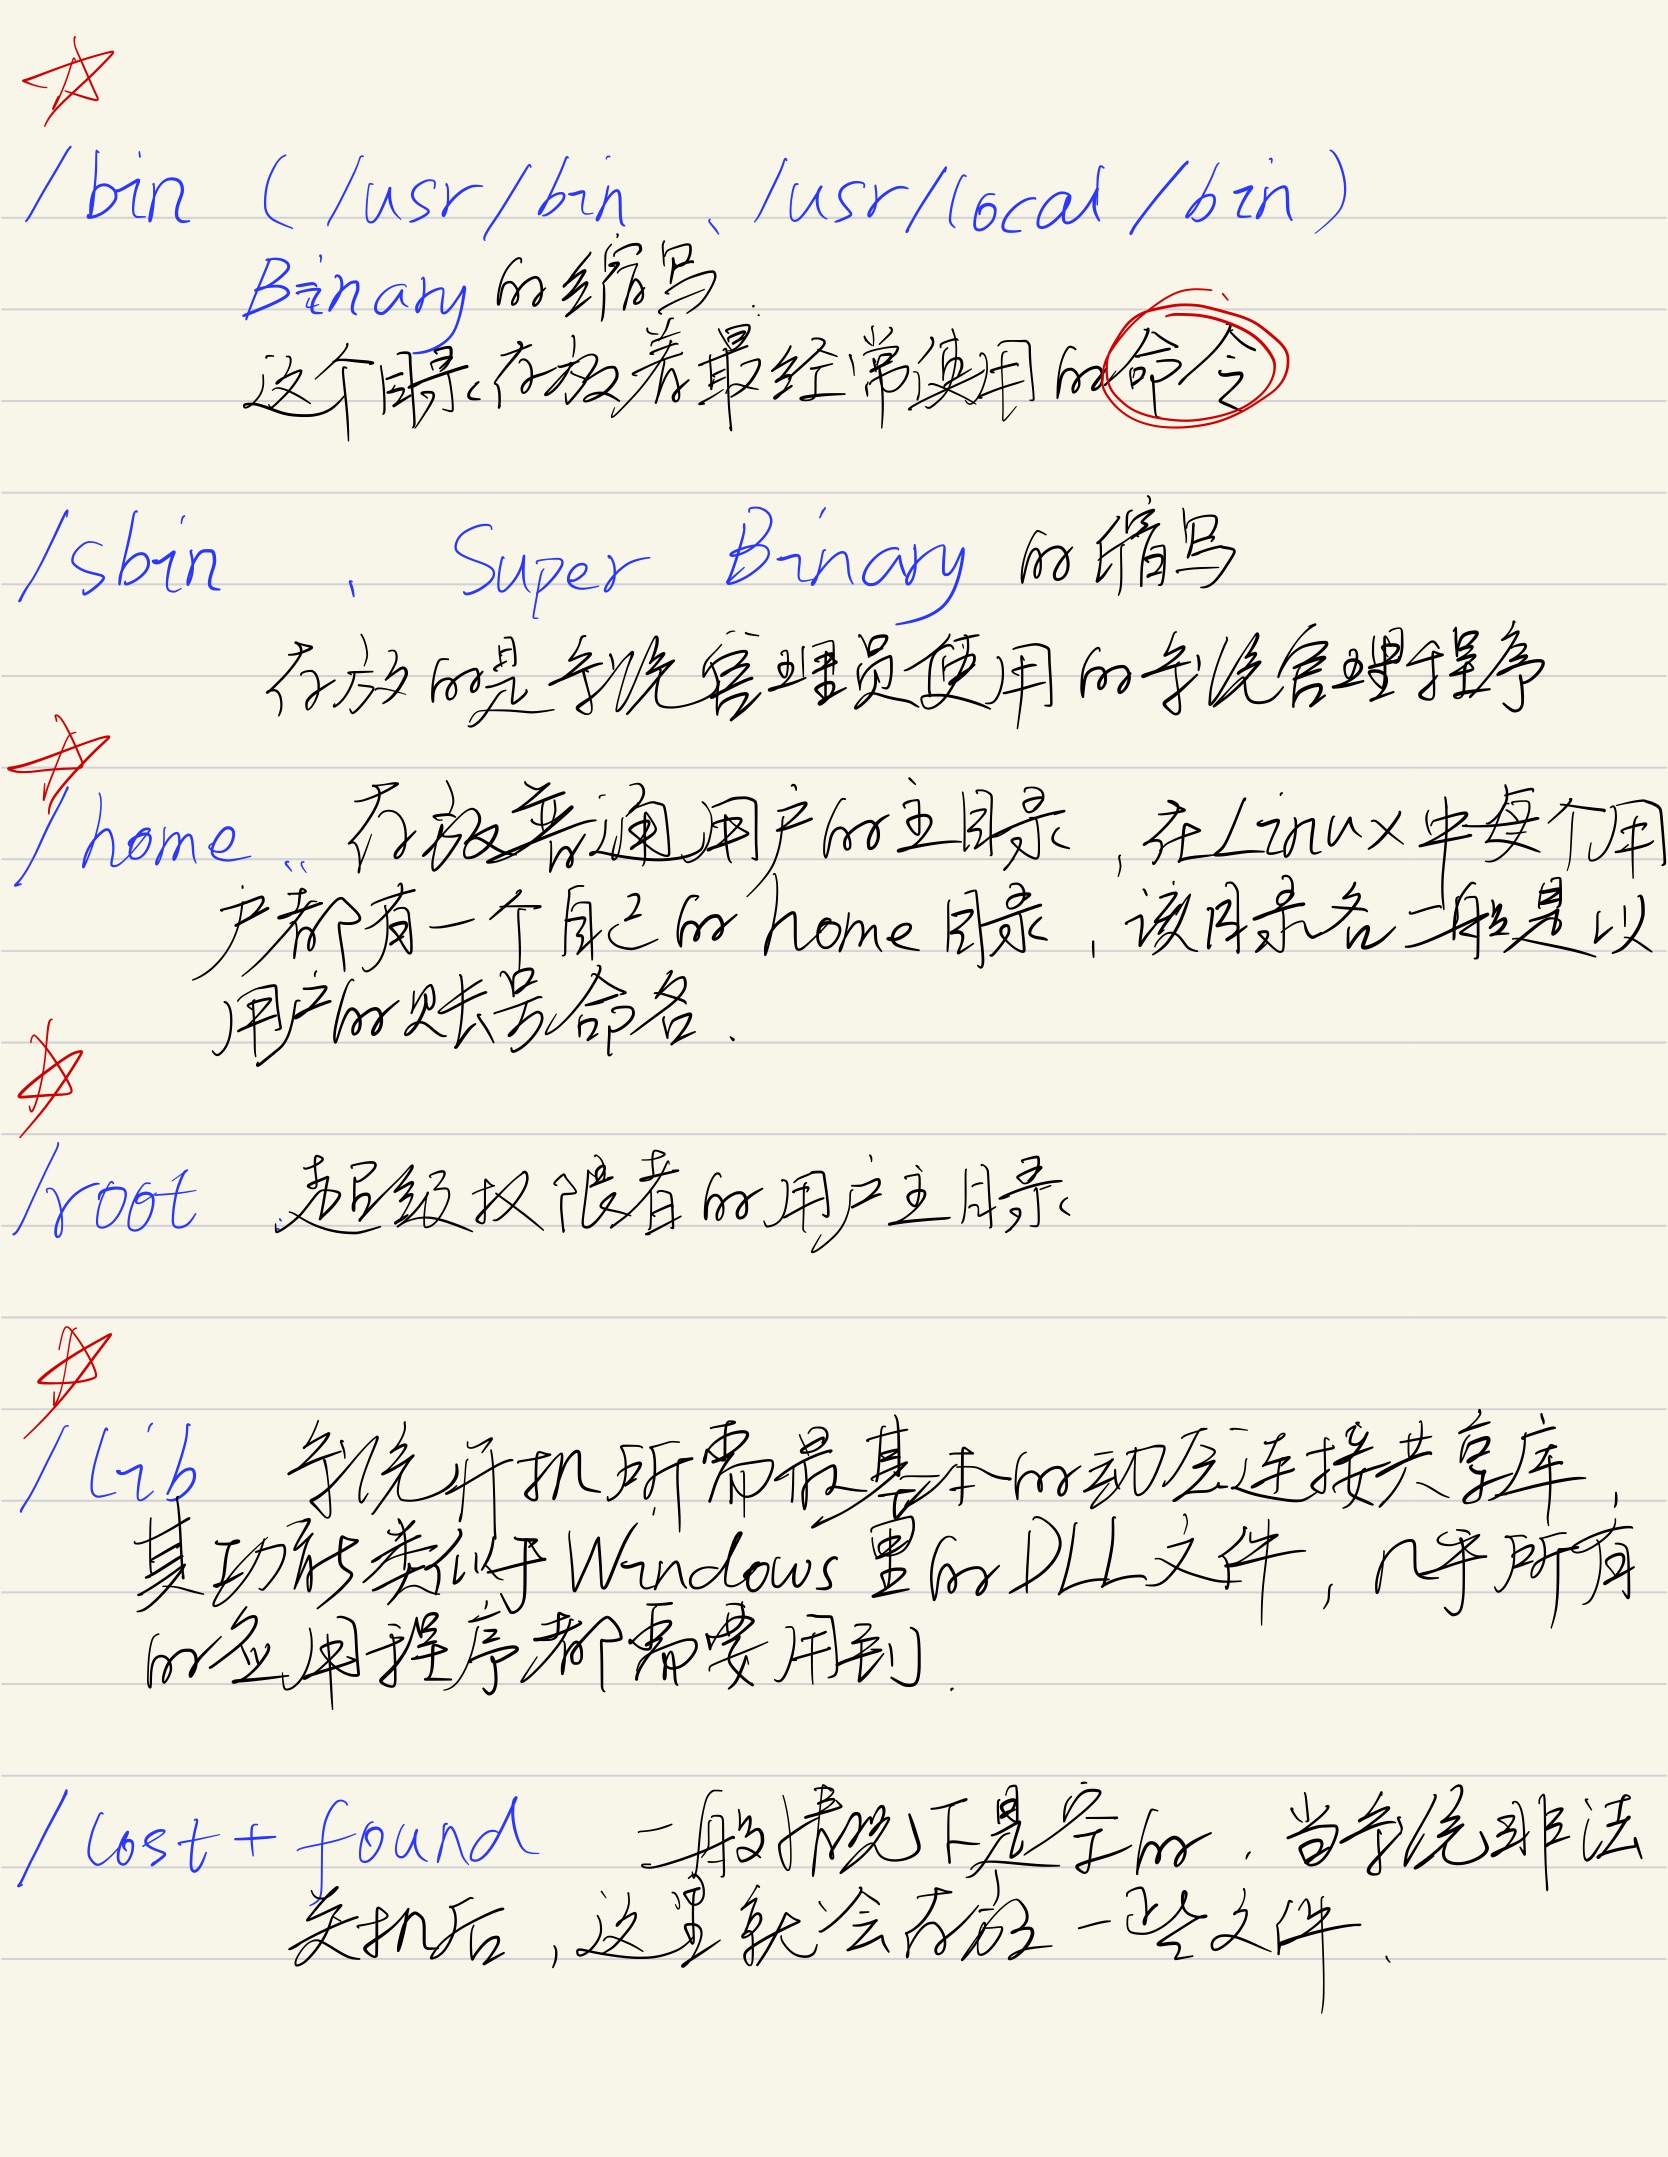 /bin (/usr/bin、/usr/local/bin)
Binary的缩写.
这个目录存放着最经常使用的命令
/sbin、Super Binary 的缩写
存放的是系统管理员使用的系统管理程序
/home 存放普通用户的主目录,在Linux中每个用
户都有一个自己的home目录,该目录名一般是以
用户的账号命名.
/root 超级权限者的用户主目录
/lib 系统开机所需最基本的动态连接共享库,
其功能类似于Windows里的DLL文件,几乎所有
的应用程序都需要用到.
/lost+found 一般情况下是空的.当系统非法
关机后,这里就会存放一些文件.